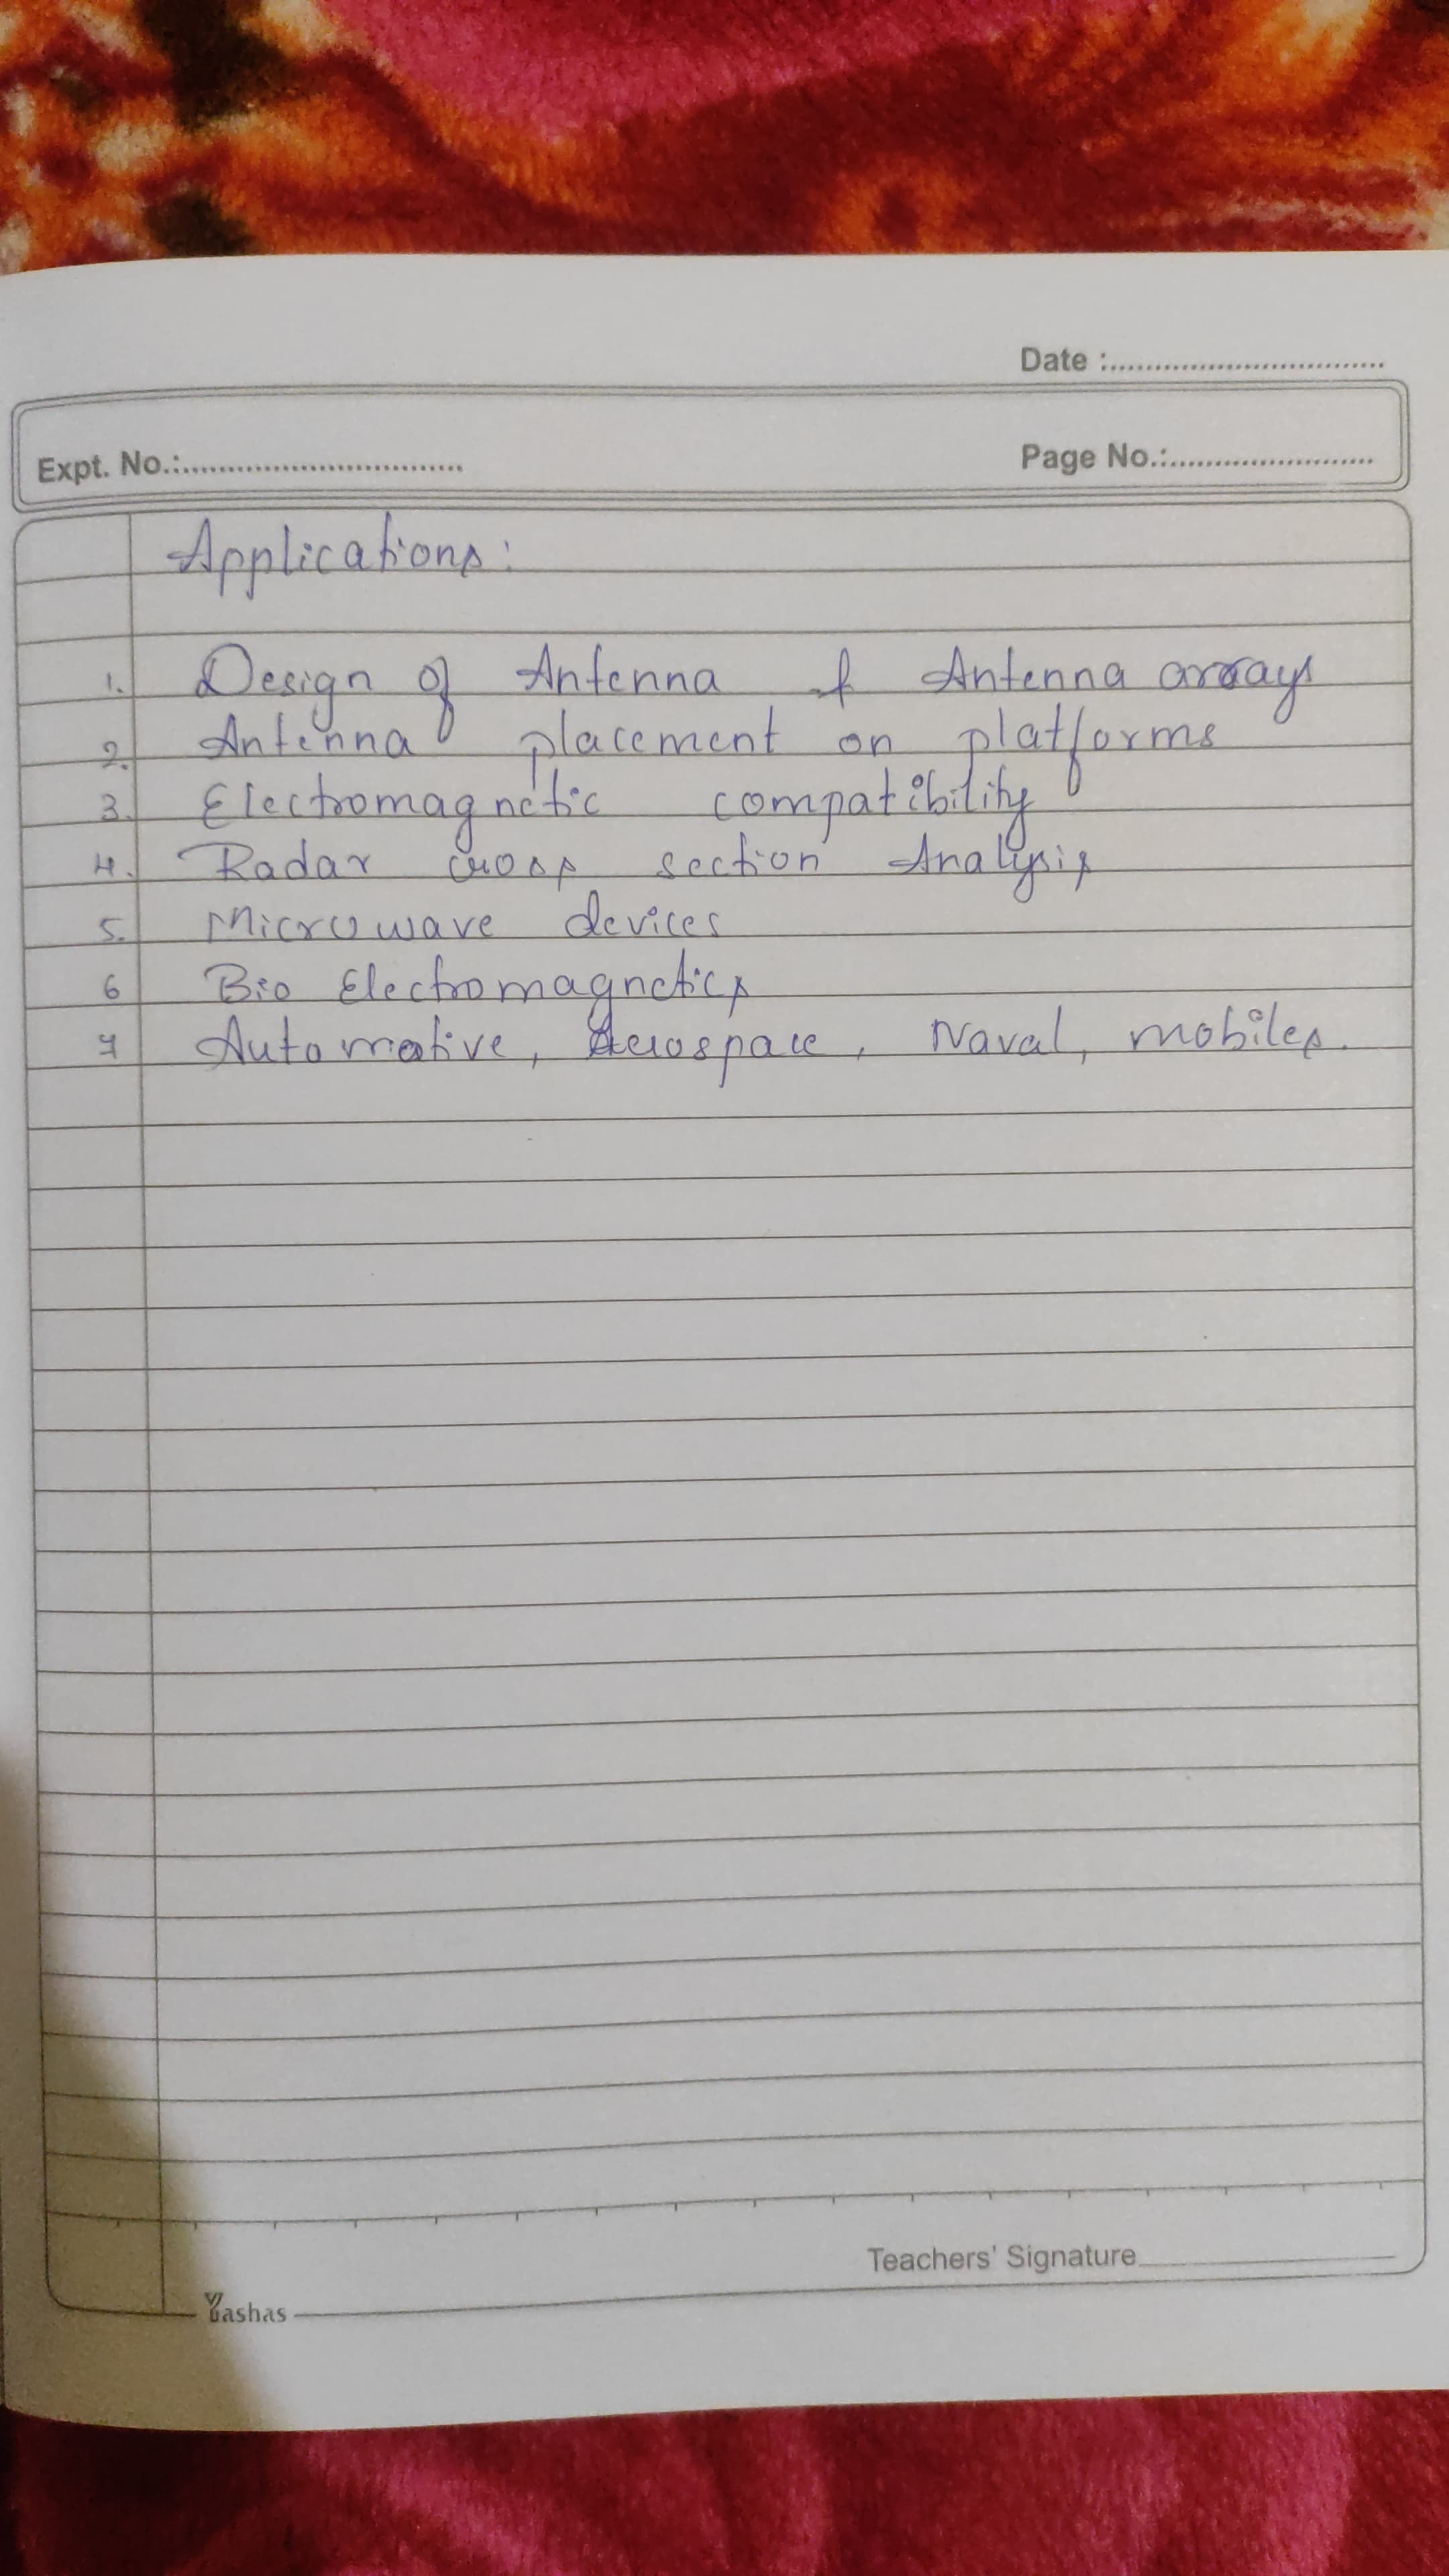 Date :
Expt. No.:
Page No.:
Applications:
1. Design of Antenna & Antenna arrays
2. Antenna placement on platforms
3. Electromagnetic compatibility
4. Radar cross section Analysis
5. Microwave devices
6 Bio Electromagnetics
7 Automative, Aerospace, Naval, mobiles.
Teachers' Signature
Yashas